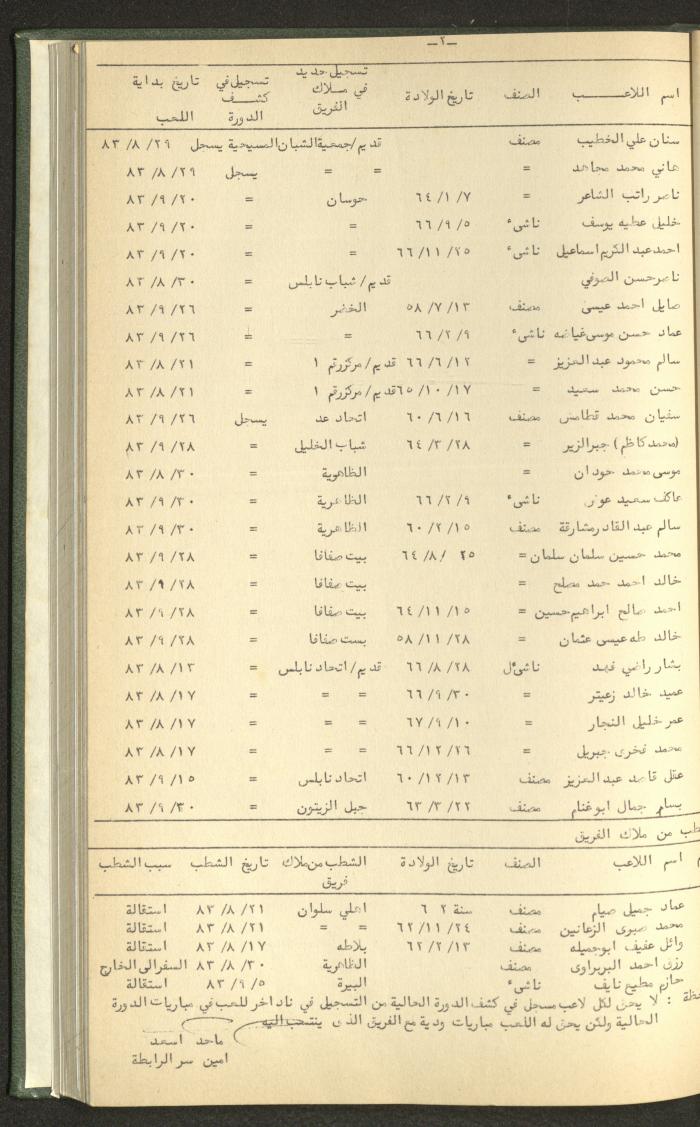 -٢-
اسم اللاعب الصنف تاريخ الولادة تسجيل جديد في ملاك الفريق تسجيل في كشف الدورة تاريخ بداية اللعب
سنان علي الخطيب مصنف قديم/جمعية الشبان المسيحية يسجل ٨٣/٨/٢٩
هاني محمد مجاهد = = = يسجل ٨٣/٨/٢٩
ناصر راتب الشاعر = ٦٤/١/٧ حوسان = ٨٣/٩/٢٠
خليل عطيه يوسف ناشىء ٦٦/٩/٥ = = ٨٣/٩/٢٠
احمد عبد الكريم اسماعيل ناشىء ٦٦/١١/٢٥ = = ٨٣/٩/٢٠
ناصر حسن الصوفي قديم/شباب نابلس = ٨٣/٨/٣٠
صايل احمد عيسى مصنف ٥٨/٧/١٣ الخضر = ٨٣/٩/٢٦
عماد حسن موسى غياضه ناشىء ٦٦/٢/٩ = = ٨٣/٩/٢٦
سالم محمود عبد العزيز = ٦٦/٦/١٢ قديم/مركز رقم ١ = ٨٣/٨/٢١
حسن محمد سعيد = ٦٥/١٠/١٧ قديم/مركز رقم ١ = ٨٣/٨/٢١
سفيان محمد قطامش مصنف ٦٠/٦/١٦ اتحاد عد يسجل ٨٣/٩/٢٦
(محمد كاظم) جبر الزير = ٦٤/٣/٢٨ شباب الخليل = ٨٣/٩/٢٨
موسى محمد حودان = الظاهوية = ٨٣/٨/٣٠
عاكف سعيد عوز ناشىء ٦٦/٢/٩ الظاهرية = ٨٣/٩/٣٠
سالم عبد القادر مشارقة مصنف ٦٠/٢/١٥ الظاهرية = ٨٣/٩/٣٠
محمد حسين سلمان سلمان = ٦٤/٨/٢٥ بيت صفافا = ٨٣/٩/٢٨
خالد احمد حمد مصلح = بيت صفافا = ٨٣/٩/٢٨
احمد صالح ابراهيم حسين = ٦٤/١١/١٥ بيت صفافا = ٨٣/٩/٢٨
خالد طه عيسى عثمان = ٥٨/١١/٢٨ بست صفافا = ٨٣/٩/٢٨
بشار راضي فهد ناشىل ٦٦/٨/٢٨ قديم/اتحاد نابلس = ٨٣/٨/١٣
عميد خالد زعيتر = ٦٦/٩/٣٠ = = = ٨٣/٨/١٧
عمر خليل النجار = ٦٧/٩/١٠ = = = ٨٣/٨/١٧
محمد فخرى جبريل = ٦٦/١٢/٢٦ = = = ٨٣/٨/١٧
عقل قاصد عبد العزيز مصنف ٦٠/١٢/١٣ اتحاد نابلس = ٨٣/٩/١٥
بسام جمال ابو غنام مصنف ٦٣/٣/٢٢ جبل الزيتون = ٨٣/٩/٣٠
طب من ملاك الفريق
م اسم اللاعب الصنف تاريخ الولادة الشطب من ملاك فريق تاريخ الشطب سبب الشطب
عماد جميل صيام مصنف سنة ٦٢ اهلي سلوان ٨٣/٨/٢١ استقالة
محمد صبرى الزعانين مصنف ٦٢/١١/٢٤ = = ٨٣/٨/٢١ استقالة
وائل عفيف ابو جميله مصنف ٦٢/٢/١٣ بلاطه ٨٣/٨/١٧ استقالة
رزق احمد البربراوى مصنف الظاهرية ٨٣/٨/٣٠ السفر الى الخارج
حازم مطيع نايف ناشىء البيرة ٨٣/٩/٥ استقالة
ظة : لا يحق لكل لاعب مسجل في كشف الدورة الحالية من التسجيل في ناد اخر للعب في مباريات الدورة
الحالية ولكن يحق له اللعب مباريات ودية مع الفريق الذى ينتسب اليه
ماجد اسعد
امين سر الرابطة